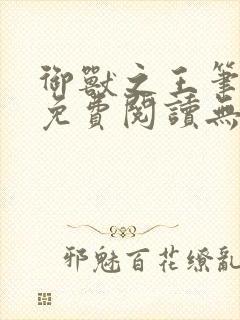 御獸之王筆
免費閱讀無
邪魅百花繚亂